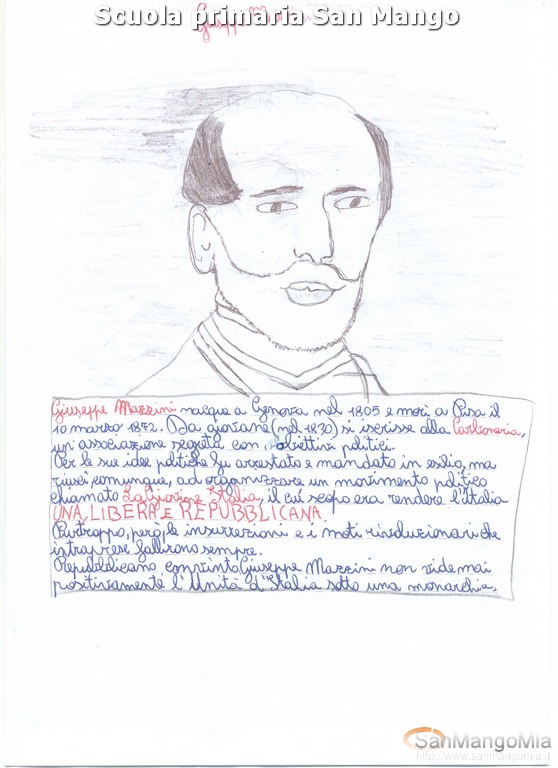 Scuola primaria San Mango
Giuseppe Mazzini nacque a Genova nel 1805 e morì a Pisa il
10 marzo 1872. Da giovane (nel 1830) si iscrisse alla Carboneria,
un'associazione segreta con obiettivi politici.
Per le sue idee politiche fu arrestato e mandato in esilio, ma
riuscì comunque, ad organizzare un movimento politico
chiamato La Giovine Italia, il cui scopo era rendere l'Italia
UNA, LIBERA E REPUBBLICANA.
Purtroppo, però, le insurrezioni e i moti rivoluzionari che
intraprese fallirono sempre.
Repubblicano convinto Giuseppe Mazzini non vide mai
positivamente l'Unità d'Italia sotto una monarchia.
SanMangoMia
http://www.sanmangomia.it